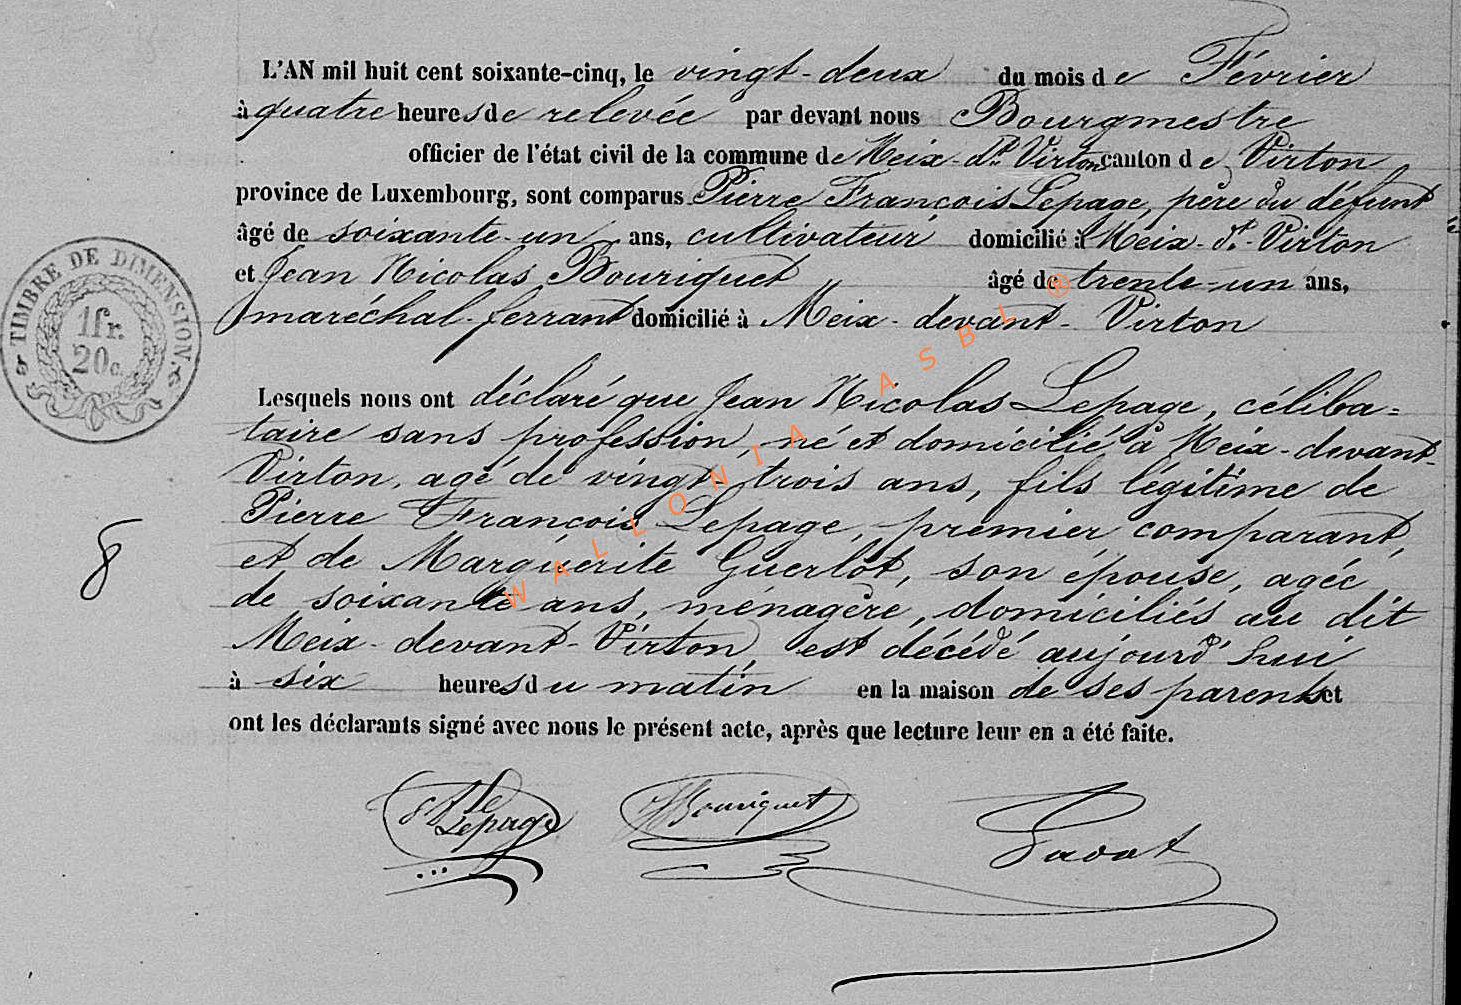 L'AN mil huit cent soixante-cinq, le vingt-deux du mois de Février
à quatre heures de relevée par devant nous Bourgmestre
officier de l'état civil de la commune de Meix-dt Virton canton de Virton
province de Luxembourg, sont comparus Pierre François Lepage, père du défunt
âgé de soixante-un ans, cultivateur domicilié à Meix-dt-Virton
et Jean Nicolas Bouriquet âgé de trente-un ans,
maréchal-ferrant domicilié à Meix-devant-Virton
TIMBRE DE DIMENSION.
1fr.
20c.
Lesquels nous ont déclaré que Jean Nicolas Lepage, céliba=
taire sans profession, né et domicilié à Meix-devant-
Virton, agé de vingt-trois ans, fils légitime de
Pierre François Lepage, premier comparant,
8
et de Marguérite Guerlot, son épouse, agée
de soixante ans, ménagère, domiciliés au dit
Meix-devant-Virton est décédé aujourd'hui
à six heures du matin en la maison de ses parents et
ont les déclarants signé avec nous le présent acte, après que lecture leur en a été faite.
Lepage Bouriquet
WALLONIA ASBL ®